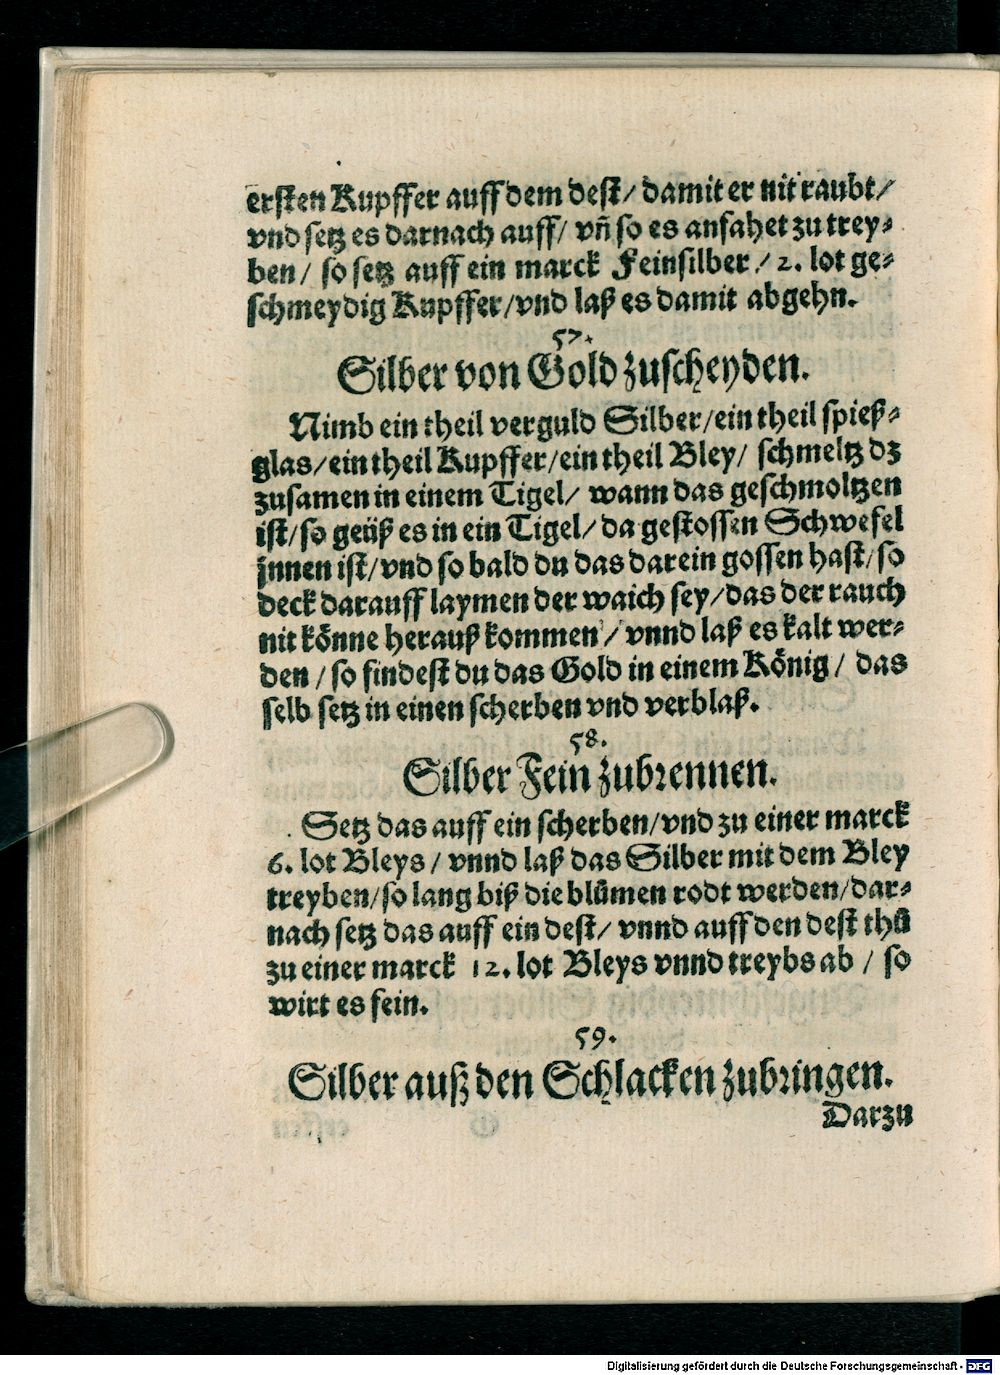 ersten Kupffer auff dem dest/ damit er nit raubt/
vnd setz es darnach auff/ vñ so es anfahet zu trey⸗
ben/ so setz auff ein marck Feinsilber/ 2. lot ge⸗
schmeydig Kupffer/vnd laß es damit abgehn.
57.
Silber von Gold zuscheyden.
Nimb ein theil verguld Silber/ein theil spieß⸗
glas/ein theil Kupffer/ein theil Bley/ schmeltz dz
zusamen in einem Tigel/ wann das geschmoltzen
ist/so geüß es in ein Tigel/da gestossen Schwefel
jnnen ist/vnd so bald du das darein gossen hast/so
deck darauff laymen der waich sey/das der rauch
nit könne herauß kommen/ vnnd laß es kalt wer⸗
den/so findest du das Gold in einem König/ das
selb setz in einen scherben vnd verblaß.
58.
Silber Fein zubrennen.
Setz das auff ein scherben/vnd zu einer marck
6. lot Bleys/ vnnd laß das Silber mit dem Bley
treyben/so lang biß die blůmen rodt werden/dar⸗
nach setz das auff ein dest/ vnnd auff den dest thů
zu einer marck 12. lot Bleys vnnd treybs ab/ so
wirt es fein.
59.
Silber auß den Schlacken zubringen.
Darzu
Digitalisierung gefördert durch die Deutsche Forschungsgemeinschaft - DFG